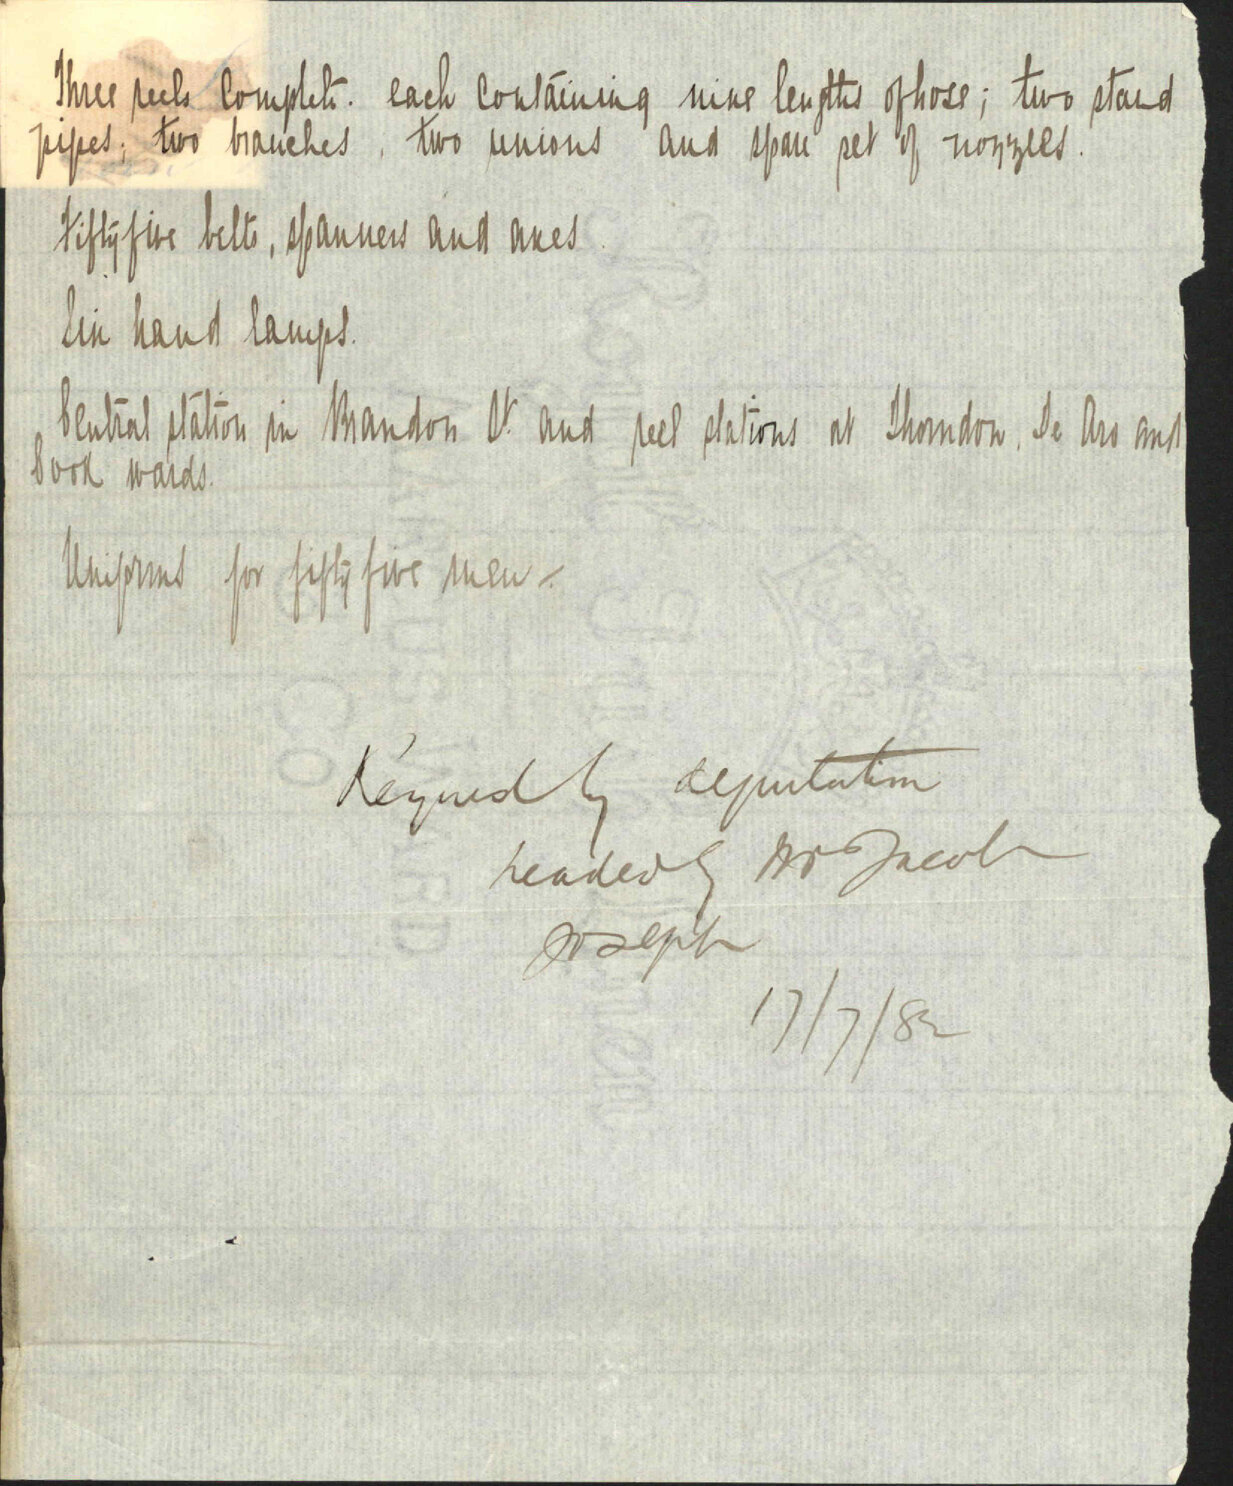 Three reels complete. each containing nine lengths of hose; two stand
pipes; two branches, two unions and spare set of nozzles.
Fifty five belts, spanners and axes.
Six hand lamps.
Central station in Brandon St. and reel stations at Thorndon, Te Aro and
Cook wards.
Uniforms for fifty five men
by deputation
headed by Mr Jacob
Joseph
17/7/82
Royal Irish Linen
MARCUS WARD
& CO